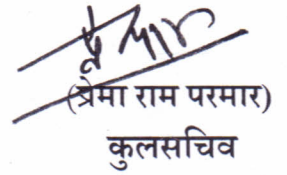 (प्रेमा राम परमार)
कुलसचिव